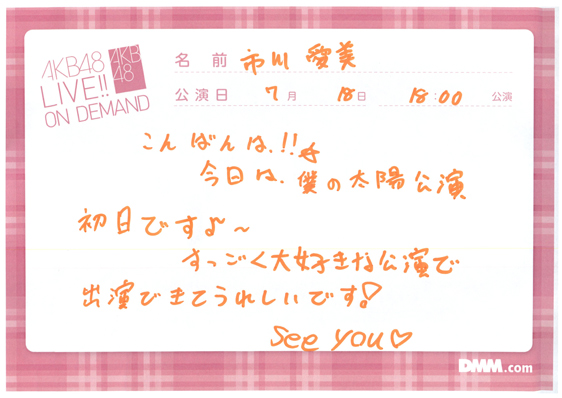 AKB48
LIVE!!
ON DEMAND
AKB
48
名 前 市川 愛美
公演日 7月 18日 18:00 公演
こんばんは、!!☆
今日は、僕の太陽公演
初日です♪〜
すっごく大好きな公演で
出演できてうれしいです!
See you♡
DMM.com